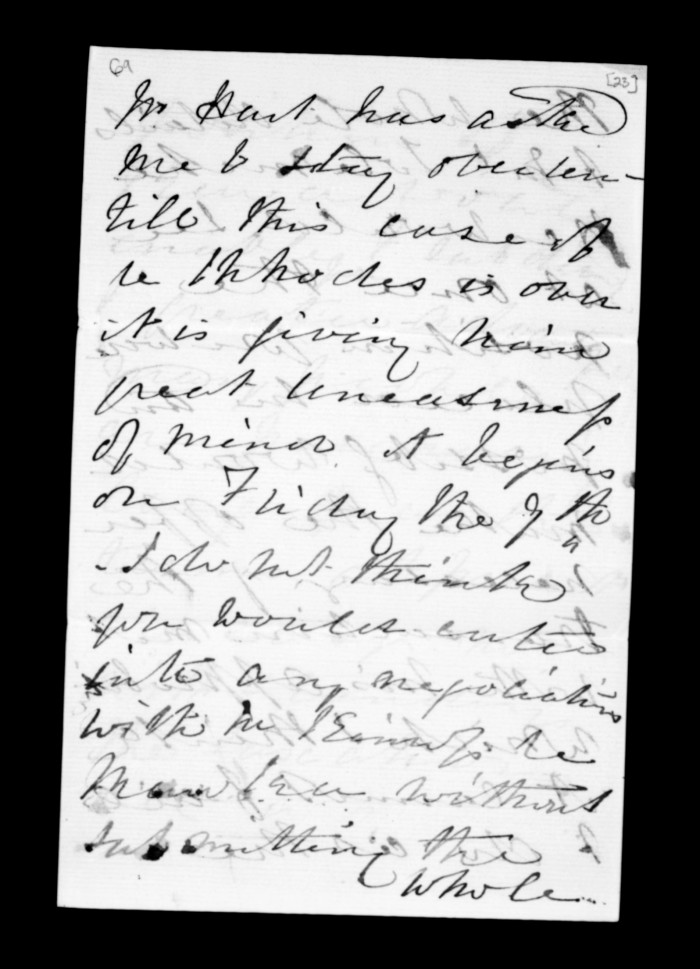 69
[23]
Mr Hart has asked
me to stay over
till this case of
te Rhodes is over
it is giving him
great uneasiness
of mind. it begins
on Friday the 9th
I do not think
you would enter
into any negociation
with Mr te
without
submitting the
whole